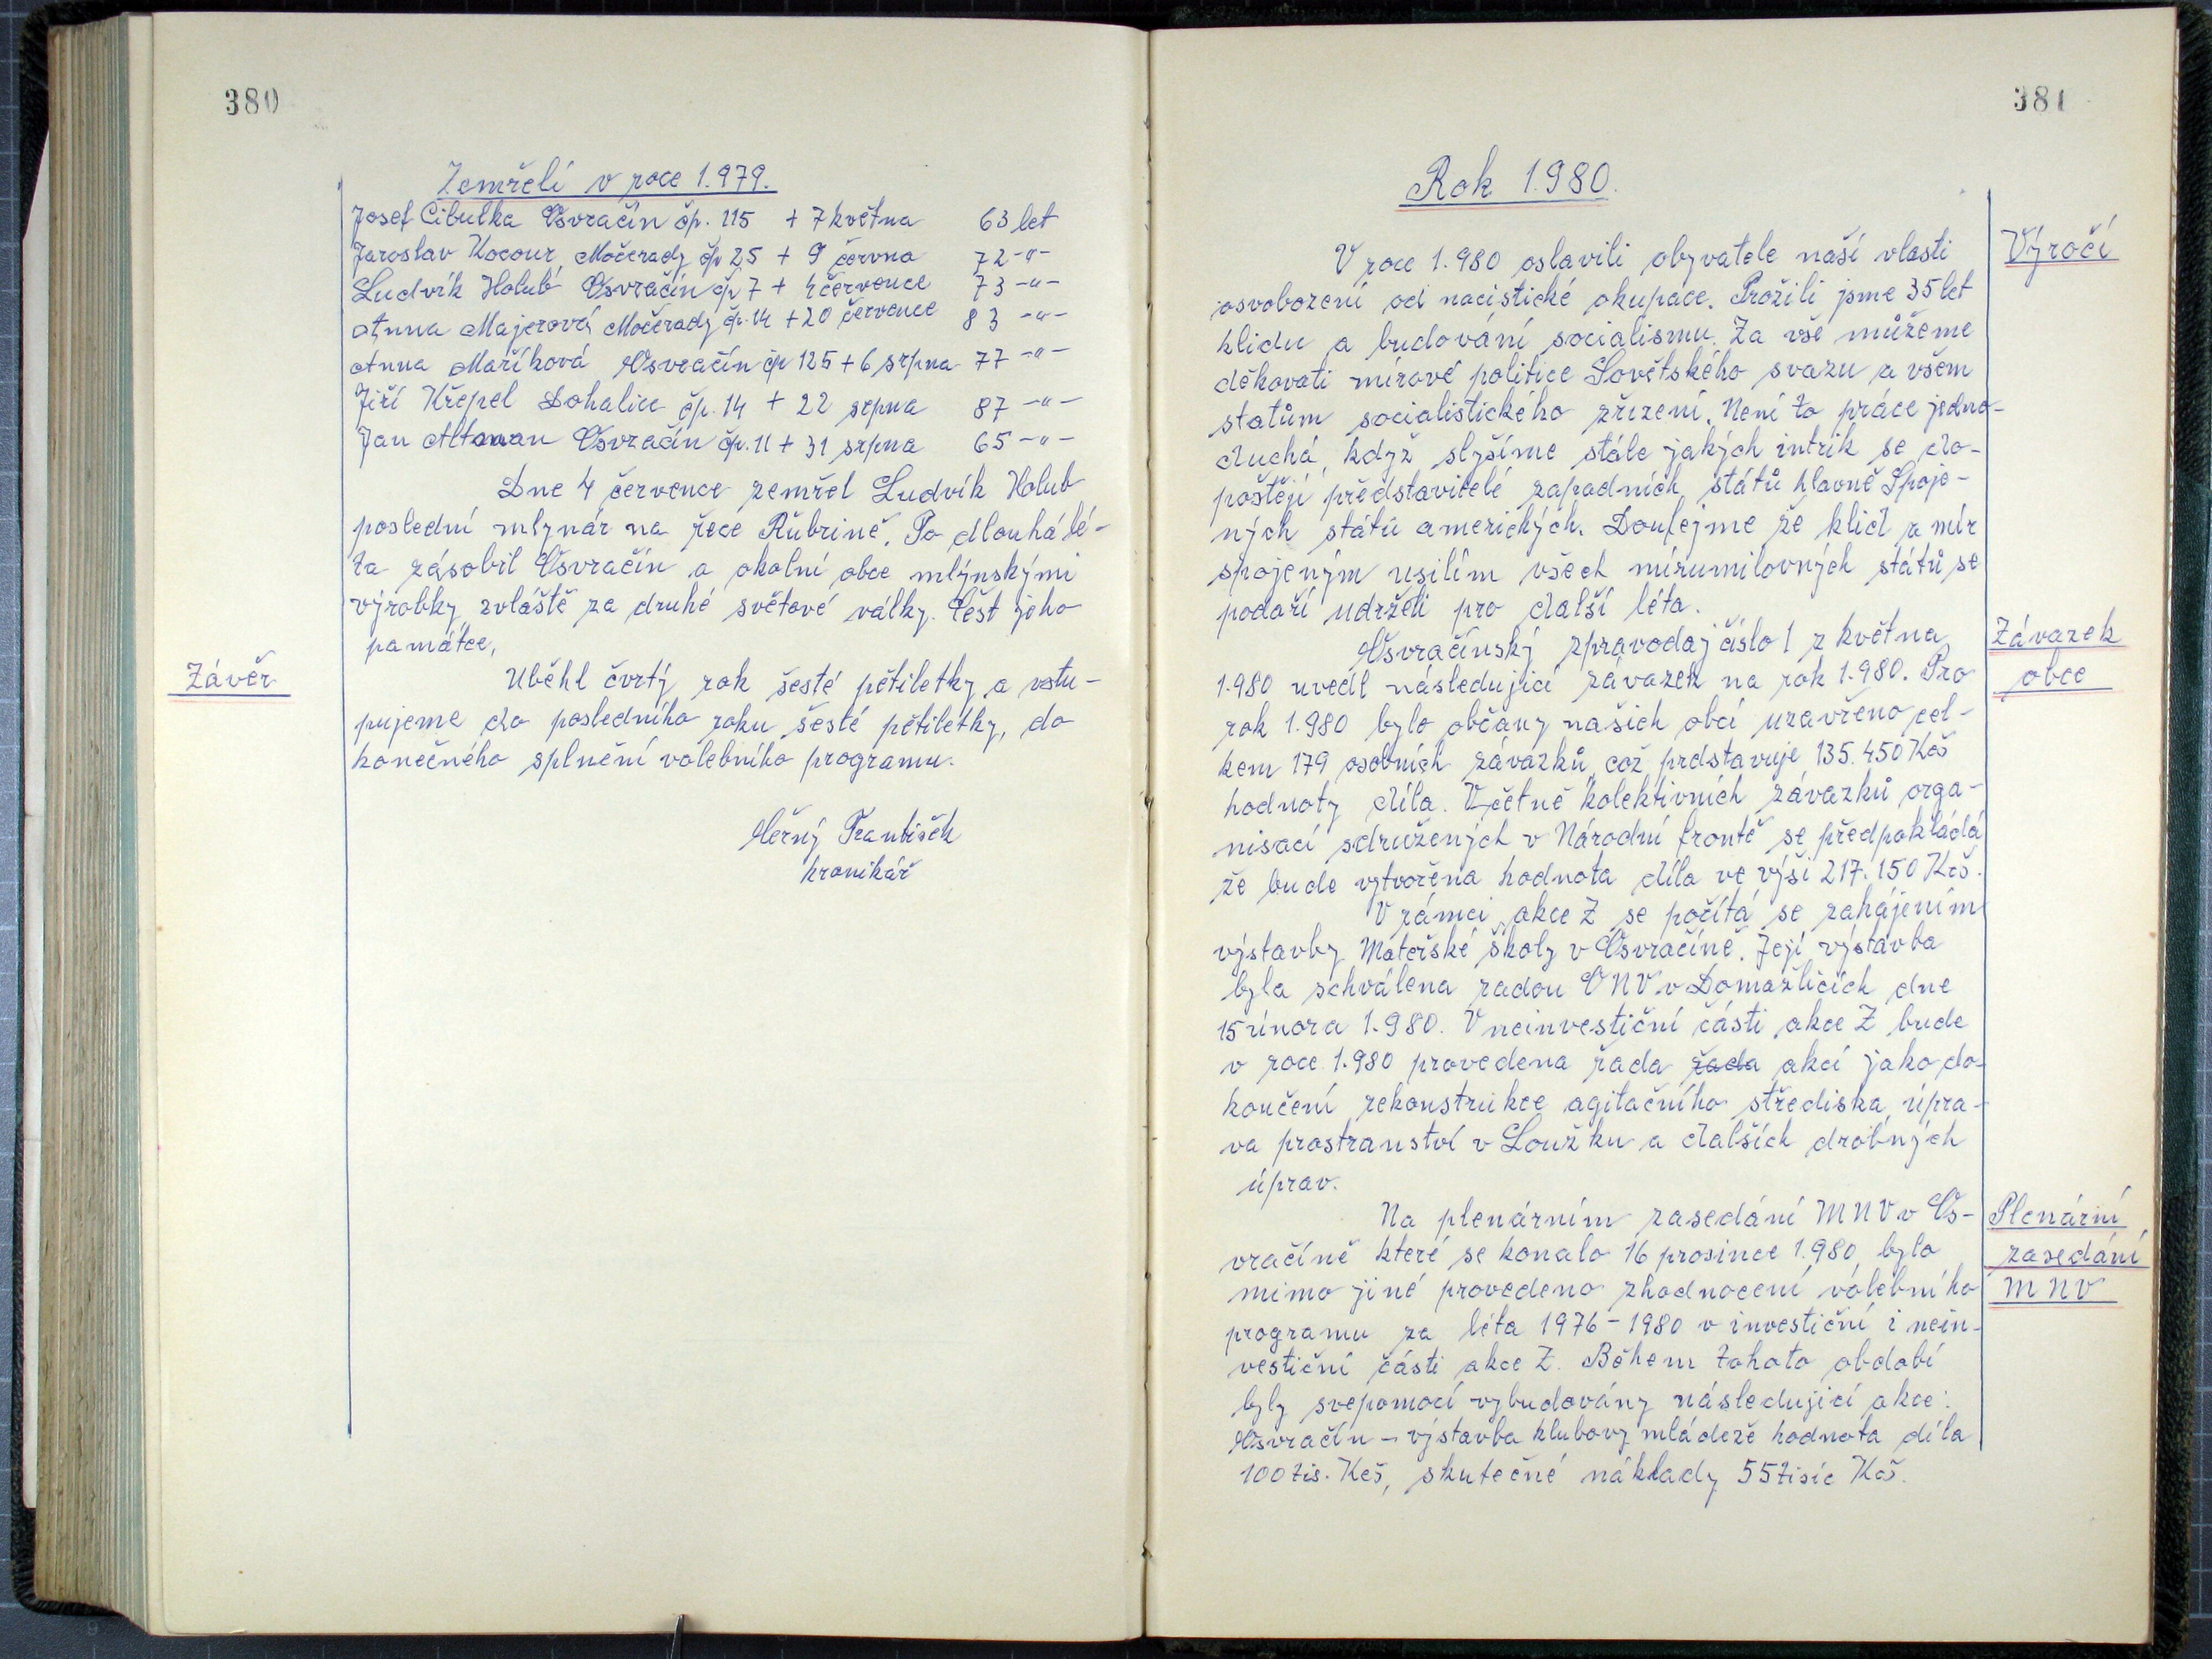 380
Zemřelí v roce 1.979.
Josef Cibulka Osvračín čp. 115 + 7 května 63 let
Jaroslav Kocour Močerady čp 25 + 9 června 72 -"-
Ludvík Holub Osvračín čp 7 + 4 července 73 -"-
Anna Majerová Močerady čp. 14 + 20 července 83 -"-
Anna Maříková Osvračín čp 125 + 6 srpna 77 -"-
Jiří Křepel Dohalice čp. 14 + 22 srpna 87 -"-
Jan Altman Osvračín čp. 11 + 31 srpna 65 -"-
Dne 4 července zemřel Ludvík Holub
poslední mlynár na řece Rubrině. Po dlouhá lé-
ta zásobil Osvračín a okolní obce mlýnskými
výrobky zvláště za druhé světové války. Čest jeho
památce,
Závěr
Uběhl čvrtý rok šesté pětiletky a vstu-
pujeme do posledního roku šesté pětiletky, do
konečného splnění volebního programu.
Černý František
kronikář
381
Rok 1.980.
Výročí
V roce 1.980 oslavili obyvatele naší vlasti
osvobození od nacistické okupace. Prožili jsme 35 let
klidu a budování socialismu. Za vše můžeme
děkovati mírové politice Sovětského svazu a všem
statům socialistického zřízení. Není to práce jedno-
duchá, když slyšíme stále jakých intrik se do-
pouštějí představitelé zapadních států hlavně Spoje-
ných států amerických. Doufejme že klid a mír
spojeným usilím všech mírumilovných států se
podaří udrželi pro další léta.
Závazek
obce
Osvračínský zpravodaj číslo 1 z května
1.980 uvedl následující závazek na rok 1.980. Pro
rok 1.980 bylo občany našich obcí uzavřeno cel-
kem 179 osobních závazků, což prdstavuje 135.450 Kčs
hodnoty díla. Včetně kolektivních závazků orga-
nisací sdružených v Národní frontě se předpokládá
že bude vytvořena hodnota díla ve výši 217.150 Kčs.
V rámci akce Z se počítá se zahájením
výstavby Mateřské školy v Osvračíně. Její výstavba
byla schválena radou ONV v Domažlicích dne
15 února 1.980. V neinvestiční části akce Z bude
v roce 1.980 provedena řada řada akcí jako do-
končení rekonstrukce agitačního střediska, úpra-
va prostranství v Loužku a dalších drobných
úprav.
Plenární
zasedání
MNV
Na plenárním zasedání MNV v Os-
vračíně které se konalo 16 prosince 1.980 bylo
mimo jiné provedeno zhodnocení volebního
programu za léta 1976-1980 v investiční i nein-
vestiční části akce Z. Během tohoto období
byly svepomocí vybudovány následující akce:
Osvračín - výstavba klubovy mládeže hodnota díla
100 tis. Kčs, skutečné náklady 55 tisíc Kčs.